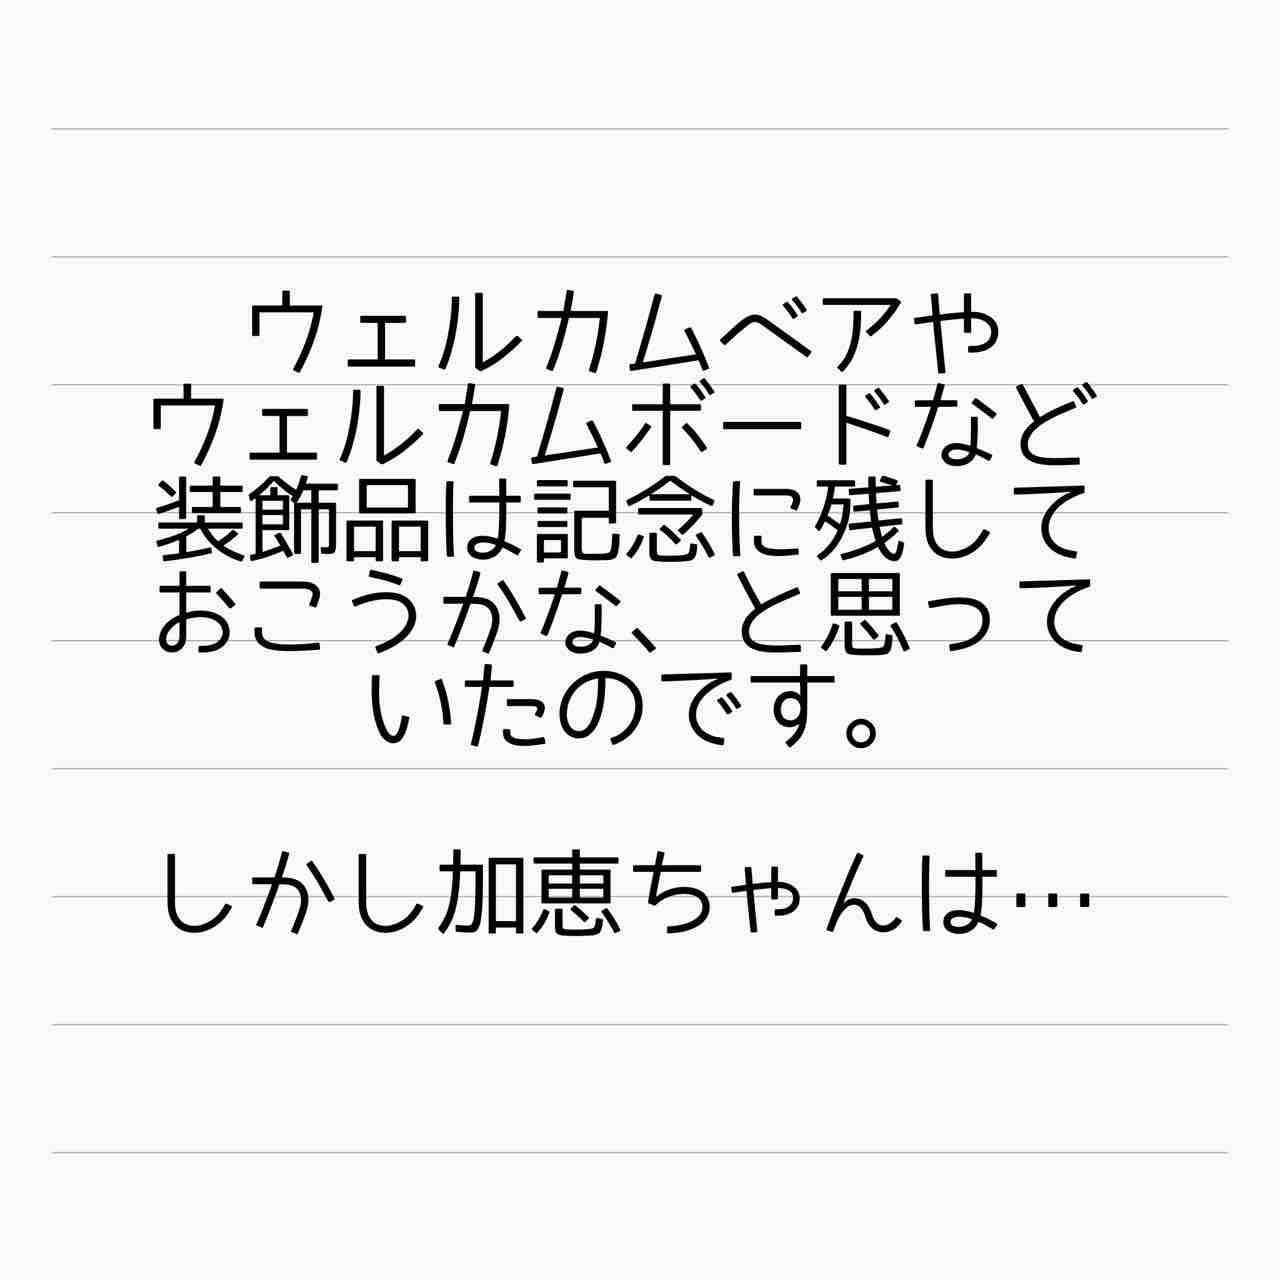 ウェルカムベアや
ウェルカムボードなど
装飾品は記念に残して
おこうかな、と思って
いたのです。
しかし加恵ちゃんは…